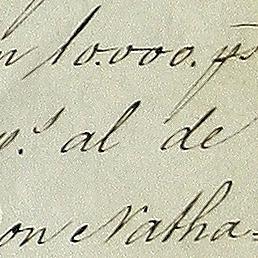 n 10.000. ps
ps. al de
on Natha=